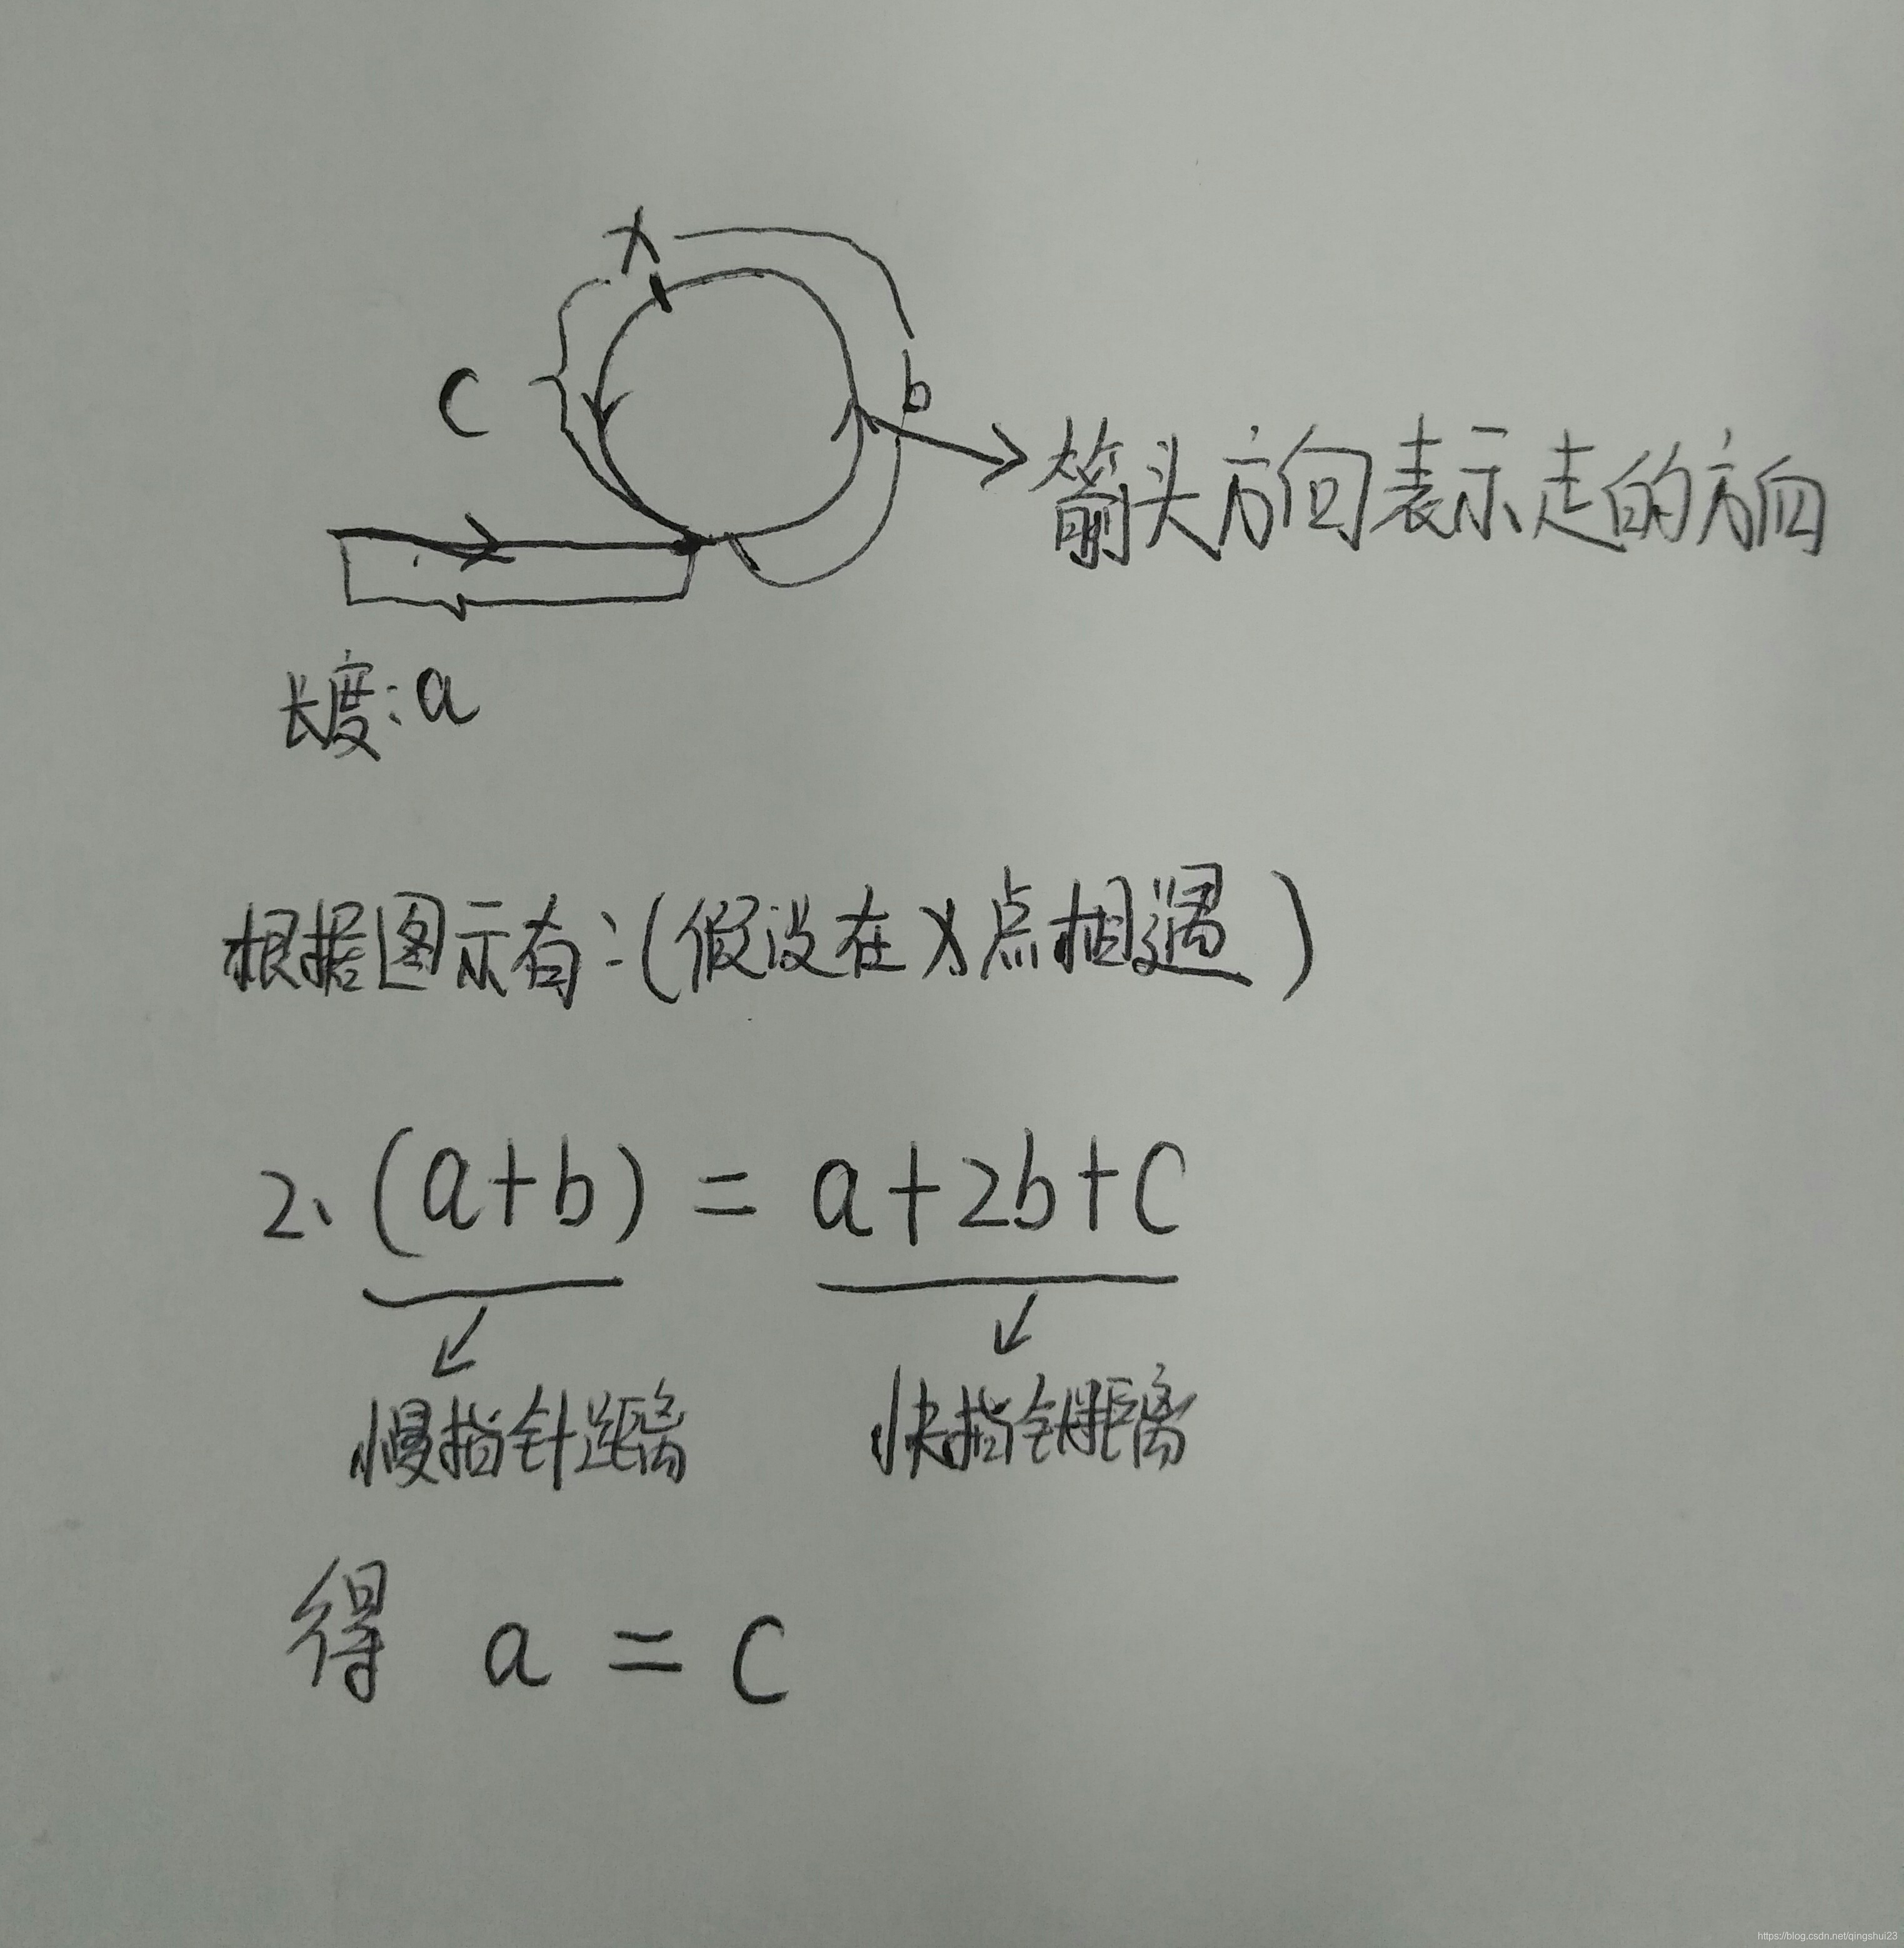 x
c
b
箭头方向表示走的方向
长度:a
根据图示有:(假设在x点相遇)
2、(a+b) = a+2b+c
慢指针距离 快指针距离
得 a = c
https://blog.csdn.net/qingshui23